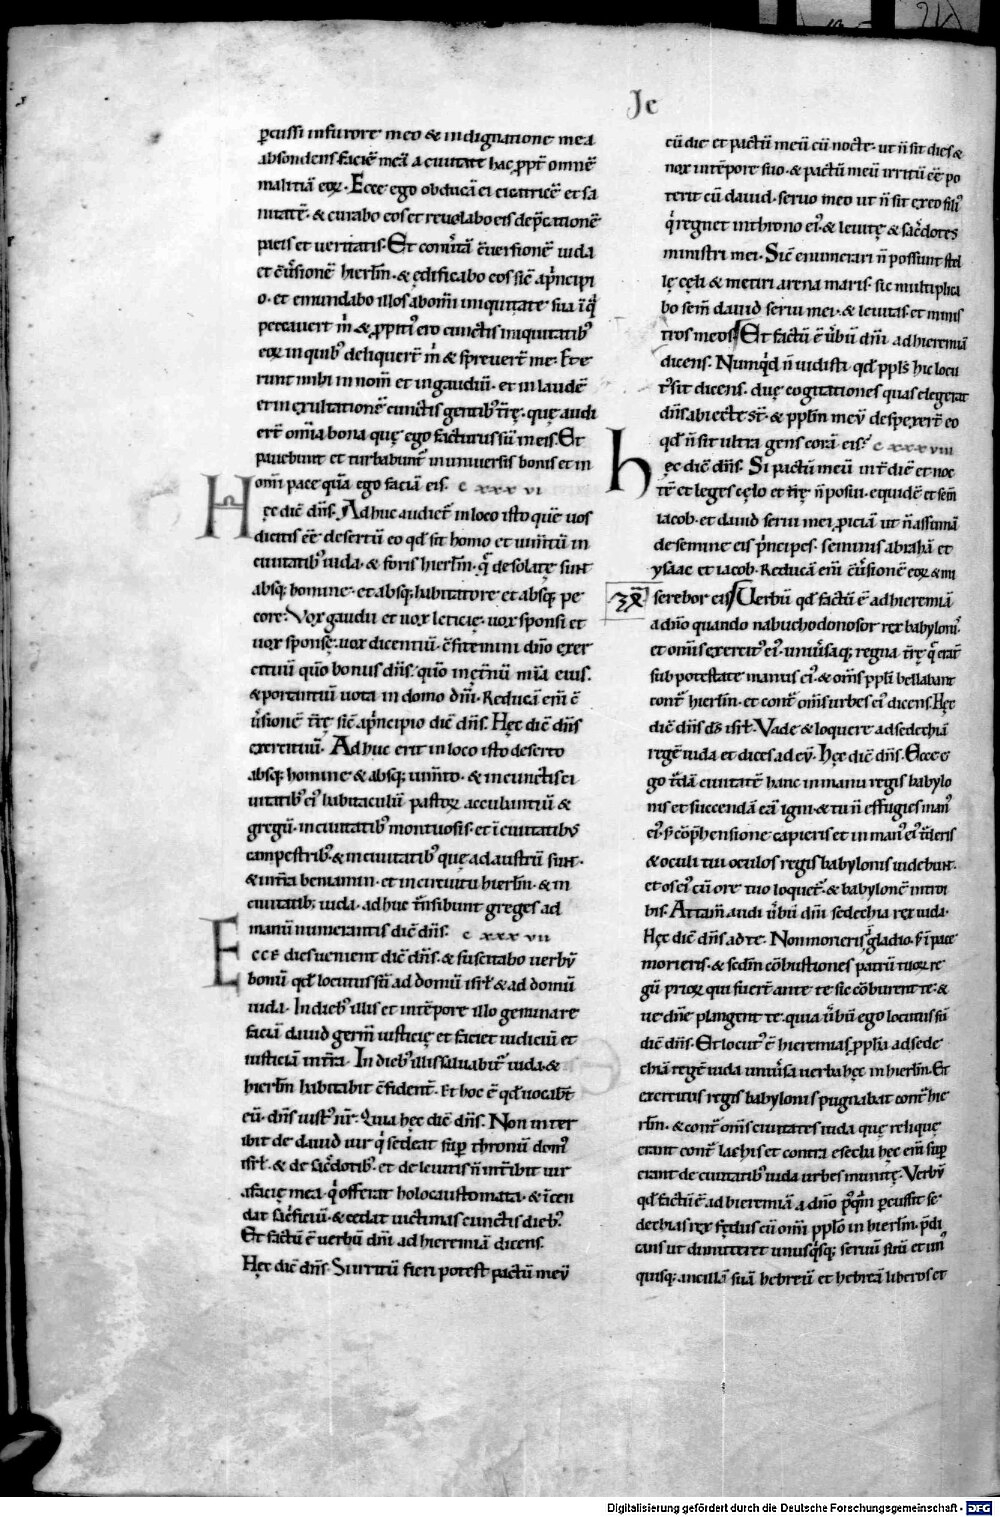 Je
pcussi infurore meo & indignatione mea
absondens faciē meā a ciuitate hac ꝓpt̄ omnē
malitiā eoꝝ. Ecce ego obducā ei cicatricē et sa
nitatē. & curabo eos et reuelabo eis dep̄cationē
pacis et ueritatis. Et conūtā c̄uersionē iuda
et c̄ūsionē hierl̄m. & ędificabo eos sic̄ ap̄ncipi
o. et emundabo illos abom̄i iniquitate sua ī q̄
peccauert m̄ & ꝓpiti᾿ ero cunctis iniquitatib᾿
eoꝝ inquib᾿ deliquer̄t m̄ & spreuer̄t me. Et e
runt mihi in nom̄ et ingaudiū. et in laudē
et in exultationē cunctis gentib᾿ t̄rę. quę audi
er̄t om̄ia bona quę ego facturus sū meis. Et
pauebunt et turbabunt̄ inuniuersis bonis et in
om̄i pace quā ego faciā eis. c xxx vi
Hęc dic̄ dn̄s. Adhuc audiet̄ inloco isto quē uos
dicitis eē desertū eo qd̄ sit homo et iumtū in
ciuitatib᾿ iuda. & foris hierl̄m. q̄ desolatę sunt
absq; homine. et absq; habitatore et absq; pe
core. Vox gaudii et uox leticię. uox sponsi et
uox sponsę. uox dicentiū. c̄fitemini dn̄o exer
cituū quō bonus dn̄s. quō inęt̄nū mīa eius.
& portantiū uota in domo dn̄i. Reducā em̄ c̄
ūsionē t̄rę sic̄ ap̄ncipio dic̄ dn̄s. Hęc dic̄ dn̄s
exercituū. Adhuc erit in loco isto deserto
absq; homine & absq; iumto. & incunctis ci
uitatib᾿ ei᾿ habitaculū pastoꝝ accubantiū &
gregū. inciuitatib᾿ montuosis. et īciuitatib᾿
campestrib᾿. & inciuitatib᾿ quę ad austrū sunt.
& int̄ra beniamin. et incircuitu hierl̄m. & in
ciuitatib; iuda. adhuc t̄nsibunt greges ad
manū numerantis dic̄ dn̄s. c xxx vii
Ecce dies uenient dic̄ dn̄s. & suscitabo uerbū
bonū qd̄ locutus sū ad domū isrl̄ & ad domū
iuda. Indieb᾿ illis et intēpore illo geminare
faciā dauid germ̄ iusticię et faciet iudiciū et
iusticiā int̄ra. In dieb᾿ illis saluabit̄ iuda. &
hierl̄m habitabit c̄fident̄. Et hoc ē qd̄ uocabt̄
eū. dn̄s iust᾿ nr̄. Quia hęc dic̄ dn̄s. Non inter
ibit de dauid uir q̄ sedeat sup̄ thronū dom᾿
isrl̄. & de sac̄dotib᾿. et de leuitis n̄ int̄ibit uir
afacię mea. q̄ offerat holocaustomata. & īcen
dat sac̄ficiū. & cedat uictimas cunctis dieb᾿.
Et factū ē uerbū dn̄i ad hieremiā dicens.
Hęc dic̄ dn̄s. Si irritū fieri potest pactū meū
cū die et pactū meū cū nocte. ut n̄ sit dies &
nox intēpore suo. & pactū meū irritū eē po
terit cū dauid. seruo meo ut n̄ sit exeo fili᾿
q̄ regnet inthrono ei᾿. & leuitę & sac̄dotes
ministri mei. Sic̄ enumerari n̄ possunt stel
lę cęli & metiri arena maris. sic multiplica
bo sem̄ dauid serui mei. & leuitas. et minis
tros meos. Et factū ē ūbū dn̄i ad hieremiā
dicens. Numq̄d n̄ uidisti qd̄ ppl̄s hic locu
t᾿ sit dicens. duę cogitationes quas elegerat
dn̄s abiectę st̄. & ppl̄m meū despexer̄t eo
qd̄ n̄ sit ultra gens corā eis. c xxx viii
hęc dic̄ dn̄s. Si pactū meū int̄ diē et noc
tē et leges cęlo et t̄rę n̄ posui. equidē et sem̄
iacob. et dauid serui mei ꝓiciā ut n̄ assumā
de semine eis p̄ncipes. seminis abrahā et
ysaac et iacob. Reducā em̄ c̄ūsionē eoꝝ & mi
serebor eis. Verbū qd̄ factū ē ad hieremiā
a dn̄o quando nabuchodonosor rex babyloni᾿.
et om̄is exercit᾿ ei᾿. uniūsaq; regna t̄rę q̄ erāt
sub potestate manus ei᾿. & om̄s ppl̄i bellabant
cont̄ hierl̄m. et cont̄ om̄s urbes ei᾿ dicens. Hęc
dic̄ dn̄s ds̄ isrl̄. Vade & loquere ad sedechiā
regē iuda et dices ad eū. Hęc dic̄ dn̄s. Ecce e
go t̄dā ciuitatē hanc in manu regis babylo
nis et succendā eā igni. & tu n̄ effugies man᾿
ei᾿. s; c̄op̄hensione capieris et in man᾿ ei᾿ t̄deris
& oculi tui oculos regis babylonis uidebunt.
et os ei᾿ cū ore tuo loquet̄. & babylonē introi
bis. Attam̄ audi ūbū dn̄i sedechia rex iuda.
Hęc dic̄ dn̄s ad te. Non morieris īgladio. s; ī pace
morieris. & scdm̄ cōbustiones patrū tuoꝝ re
gū prioꝝ qui fuer̄t ante te sic cōburent te. &
ue dn̄e plangent te. quia ūbū ego locutus sū
dic̄ dn̄s. Et locut᾿ ē hieremias ꝓph̄a ad sede
chiā regē iuda uniūsa uerba hęc in hierl̄m. Et
exercitus regis babylonis pugnabat cont̄ hie
rl̄m. & cont̄ om̄s ciuitates iuda quę relique
erant cont̄ lachis et contra azecha hęc em̄ sup̄
erant de ciuitatib᾿ iuda urbes munitę. Verbū
qd̄ factū ē ad hieremiā a dn̄o p᾿q̄m percussit se
dechias rex fędus cū om̄i ppl̄o in hierl̄m. p̄di
cans ut dimitteret unusq̄sq; seruū suū et un᾿
quisq; ancillā suā hebreū et hebreā liberos et
Digitalisierung gefördert durch die Deutsche Forschungsgemeinschaft - DFG